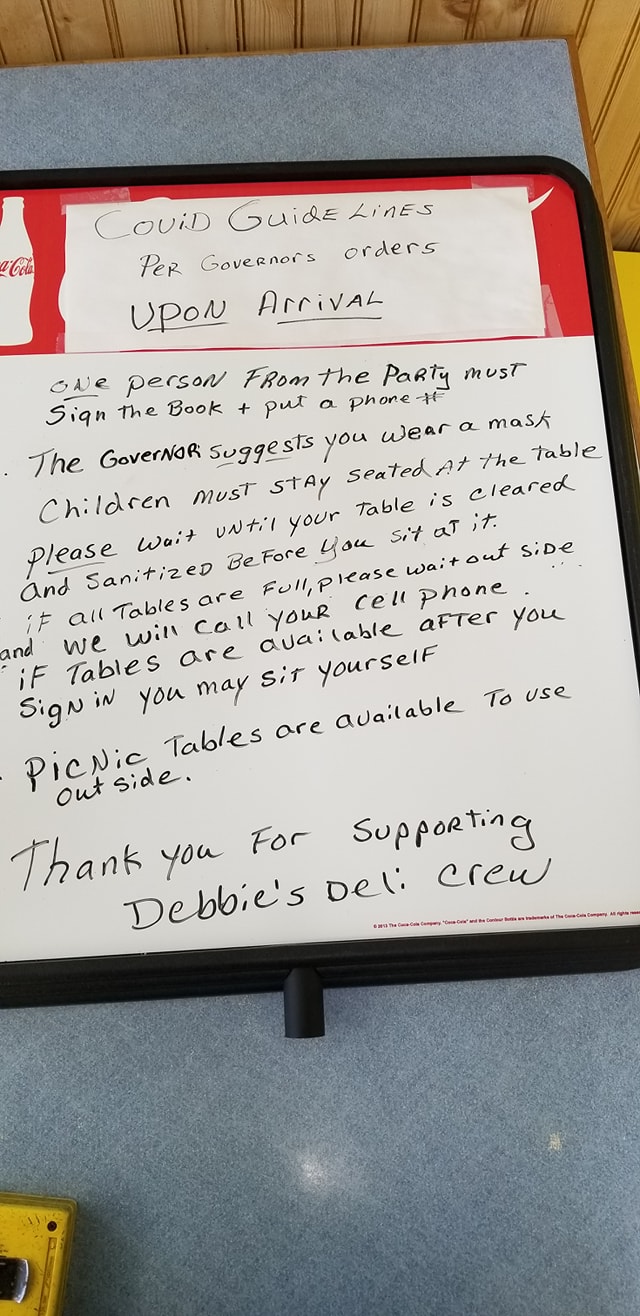 COVID GUIDELINES
PER GOVERNORS orders
UPON ARRIVAL
Coca-Cola
ONE person FROM the PARTY must
Sign the Book + put a phone #
. The GOVERNOR Suggests you wear a mask
Children must STAY seated At the table
please wait until your table is cleared
and SANITIZED BeFore you sit at it.
if all Tables are Full, please wait out side
and we will call your cell phone.
iF Tables are available aFTer you
SigN iN you may sit yourself
- PicNic Tables are available To use
out side.
Thank you For Supporting
Debbie's Deli crew
© 2013 The Coca-Cola Company. "Coca-Cola" and the Contour Bottle are trademarks of The Coca-Cola Company. All rights